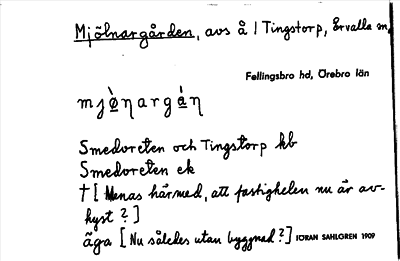 Mjölnargården, avs å 1 Tingstorp, Ervalla sn,
Fellingsbro hd, Örebro län
mjø̀ηargáη
Smedoreten och Tingstorp kb
Smedoreten ek
† [Menas härmed, att fastigheten nu är av-
hyst?]
äga [Nu således utan byggnad?] GÖRAN SAHLGREN 1909